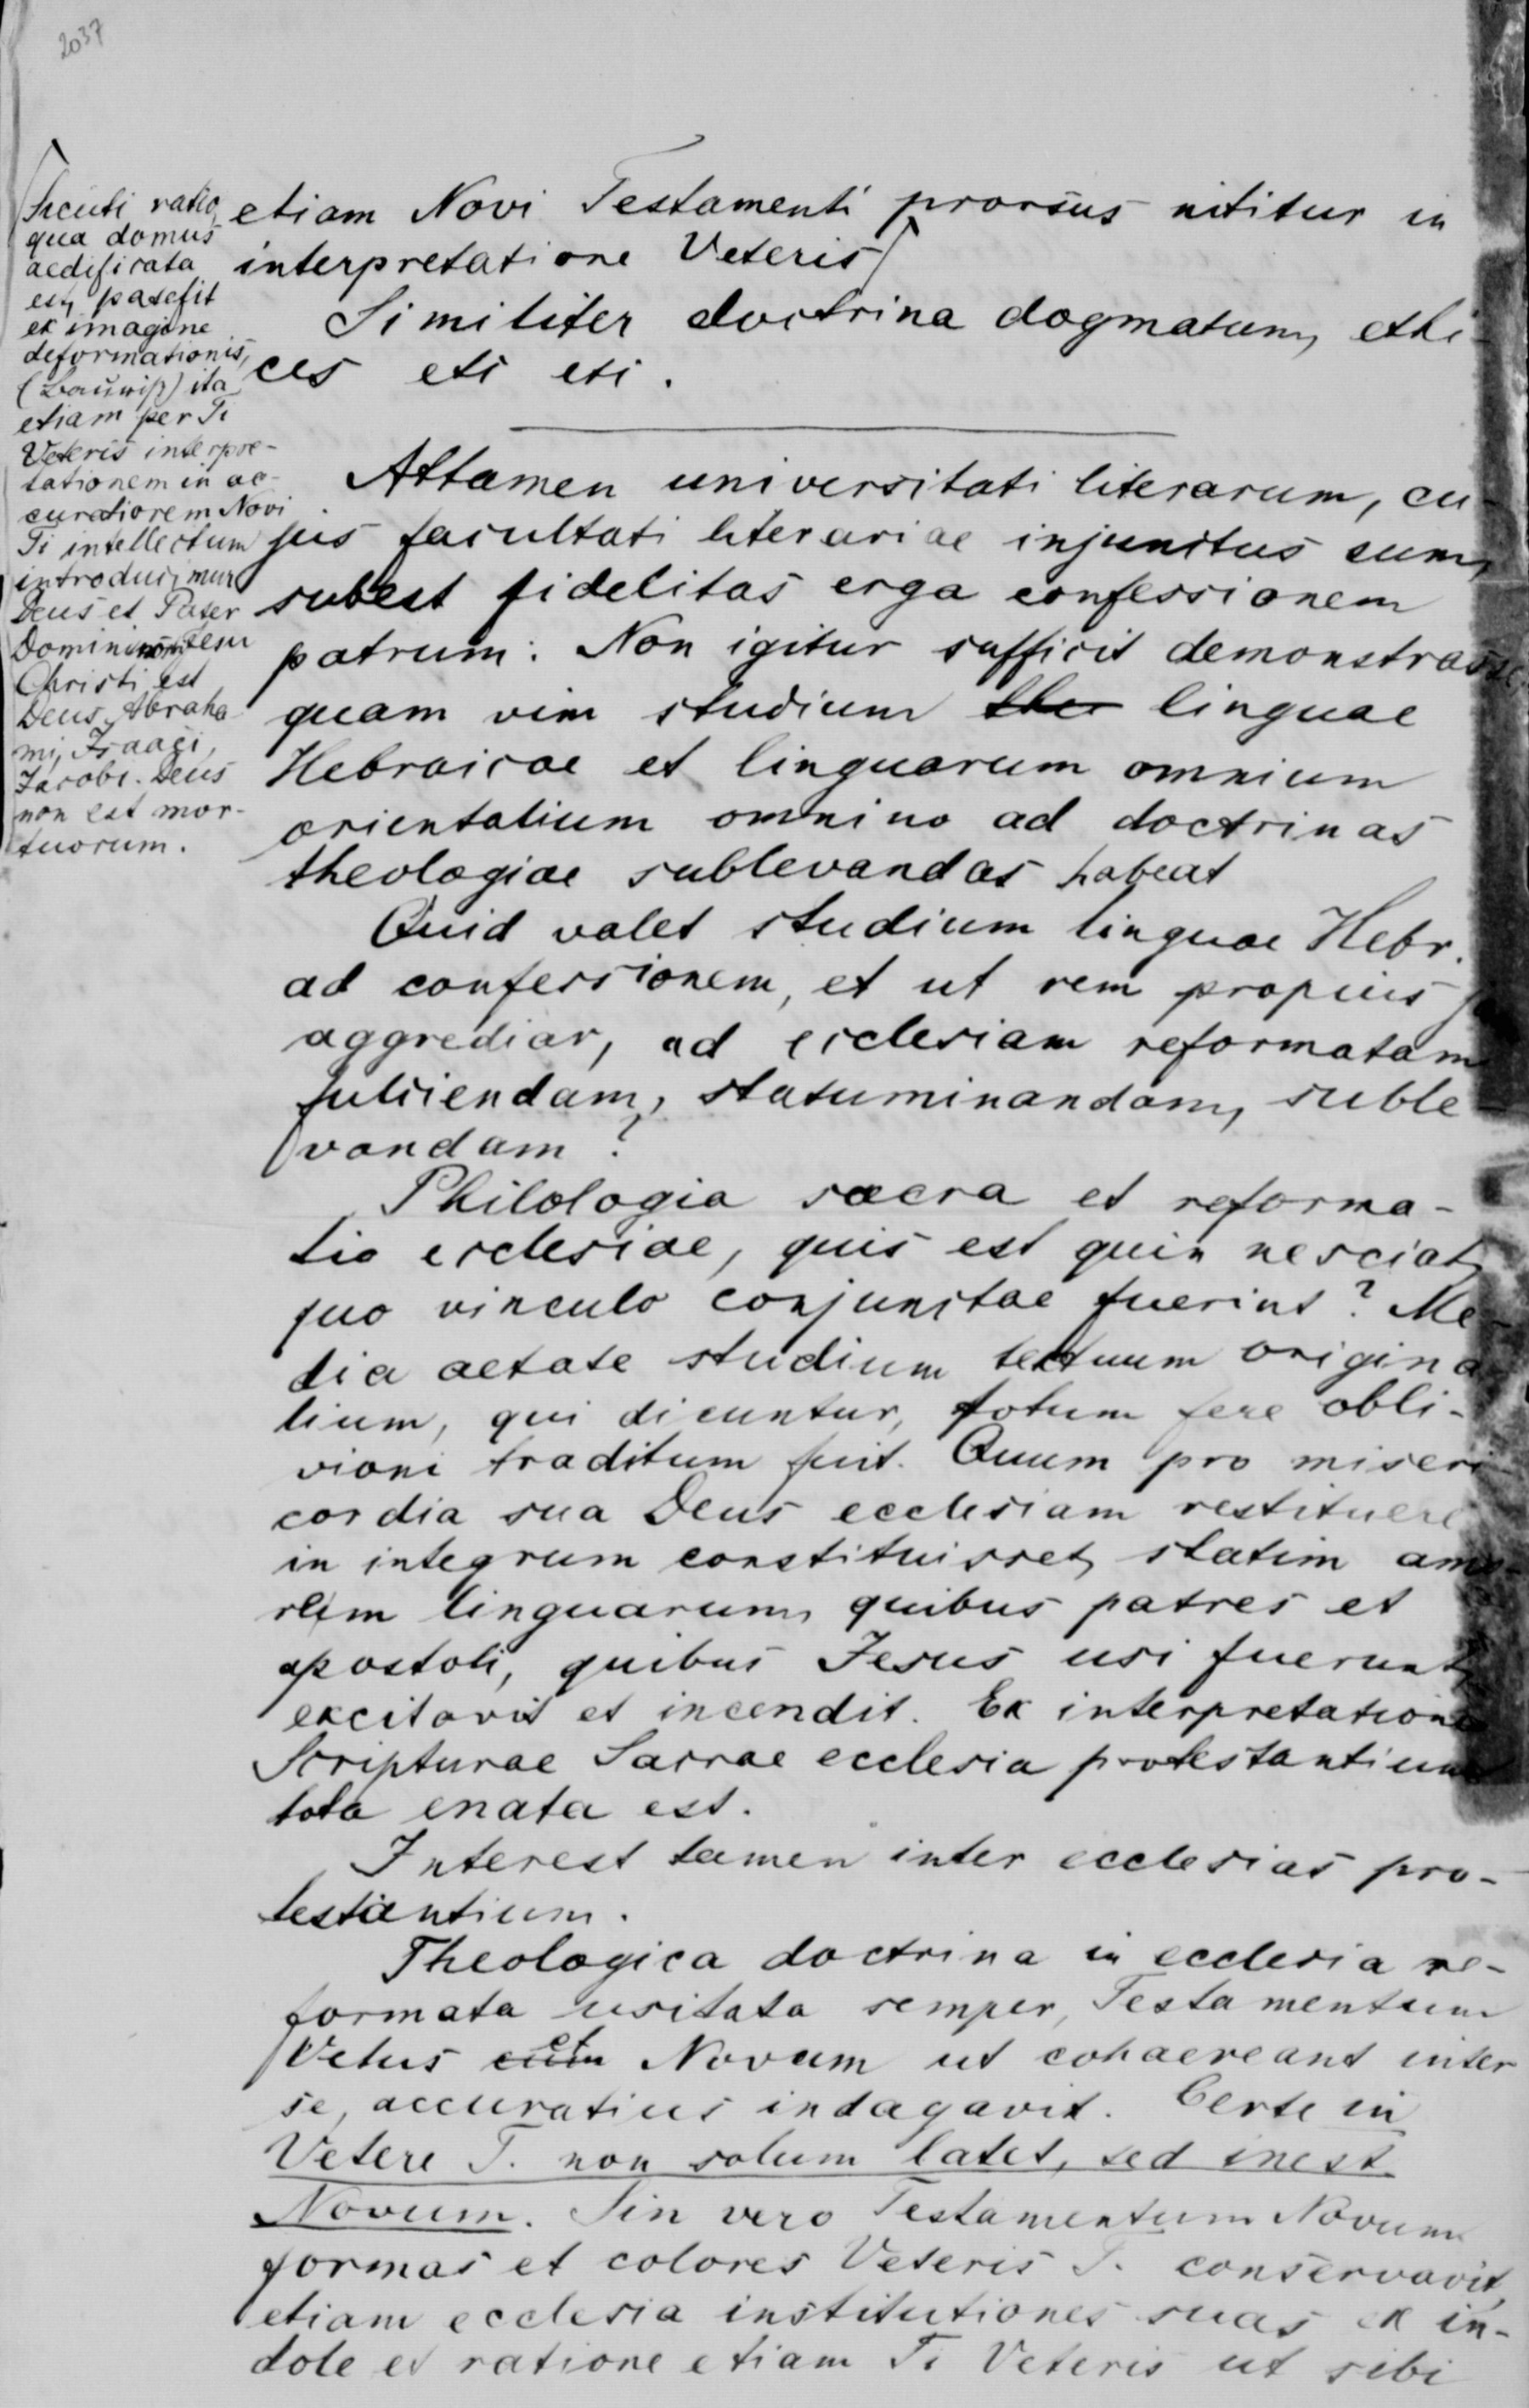 2037
etiam Novi Testamenti prorsus nititur in
interpretatione Veteris
Similiter doctrina dogmatum, ethi-
ces etc etc.
Sicuti ratio,
qua domus
aedificata
est, patefit
ex imagine
deformationis,
(Bauriß) ita
etiam per Ti
Veteris interpre-
tationem in ac-
curatiorem Novi
Ti intellectum
introducimur
Deus et Pater
Domini nostri Jesu
Christi est
Deus Abraha
mi, Isaaci,
Jacobi. Deus
non est mor-
tuorum.
Attamen universitati literarum, cu-
jus facultati literariae injunctus sum,
subest fidelitas erga confessionem
patrum: Non igitur sufficit demonstrasse
quam vim studium linguae
Hebraicae et linguarum omnium
orientalium omnino ad doctrinas
theologiae sublevandas habeat
Quid valet studium linguae Hebr.
ad confessionem, et ut rem propius
aggrediar, ad ecclesiam reformatam
fulciendam, statuminandam, suble
vandam?
Philologia sacra et reforma-
tio ecclesiae, quis est quin nesciat,
quo vinculo conjunctae fuerint? Me-
dia aetate studium textuum origina
lium, qui dicuntur, totum fere obli-
vioni traditum fuit. Quum pro miseri
cordia sua Deus ecclesiam restituere
in integrum constituisset, statim amo-
rem linguarum, quibus patres et
apostoli, quibus Jesus usi fuerunt,
excitavit et incendit. Ex interpretatione
Scripturae Sacrae ecclesia protestantium
tota enata est.
Interest tamen inter ecclesias pro-
testantium.
Theologica doctrina in ecclesia re-
formata usitata semper, Testamentum
Vetus cum et Novum ut cohaereant inter
se, accuratius indagavit. Certe in
Vetere T. non solum latet, sed inest
Novum. Sin vero Testamentum Novum
formas et colores Veteris T. conservavit,
etiam ecclesia institutiones suas ex in-
dole et ratione etiam Ti Veteris ut sibi